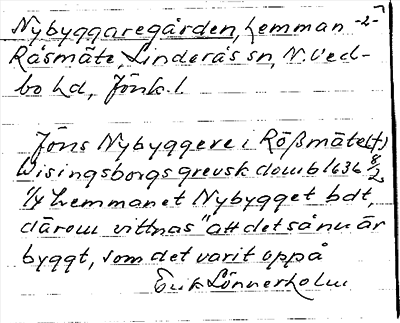 Nybyggaregården, hemman -2-
Råsmäte, Linderås sn, N. Ved-
bo hd, Jönk. l.
Jöns Nybyggere i Rößmäte (t)
Wisingsborgs grevsk domb 1636 8/2
1/4 hemmanet Nybygget bdt,
därom vittnas "att det så nu är
byggt, som det varit oppå
Erik Lönnerholm